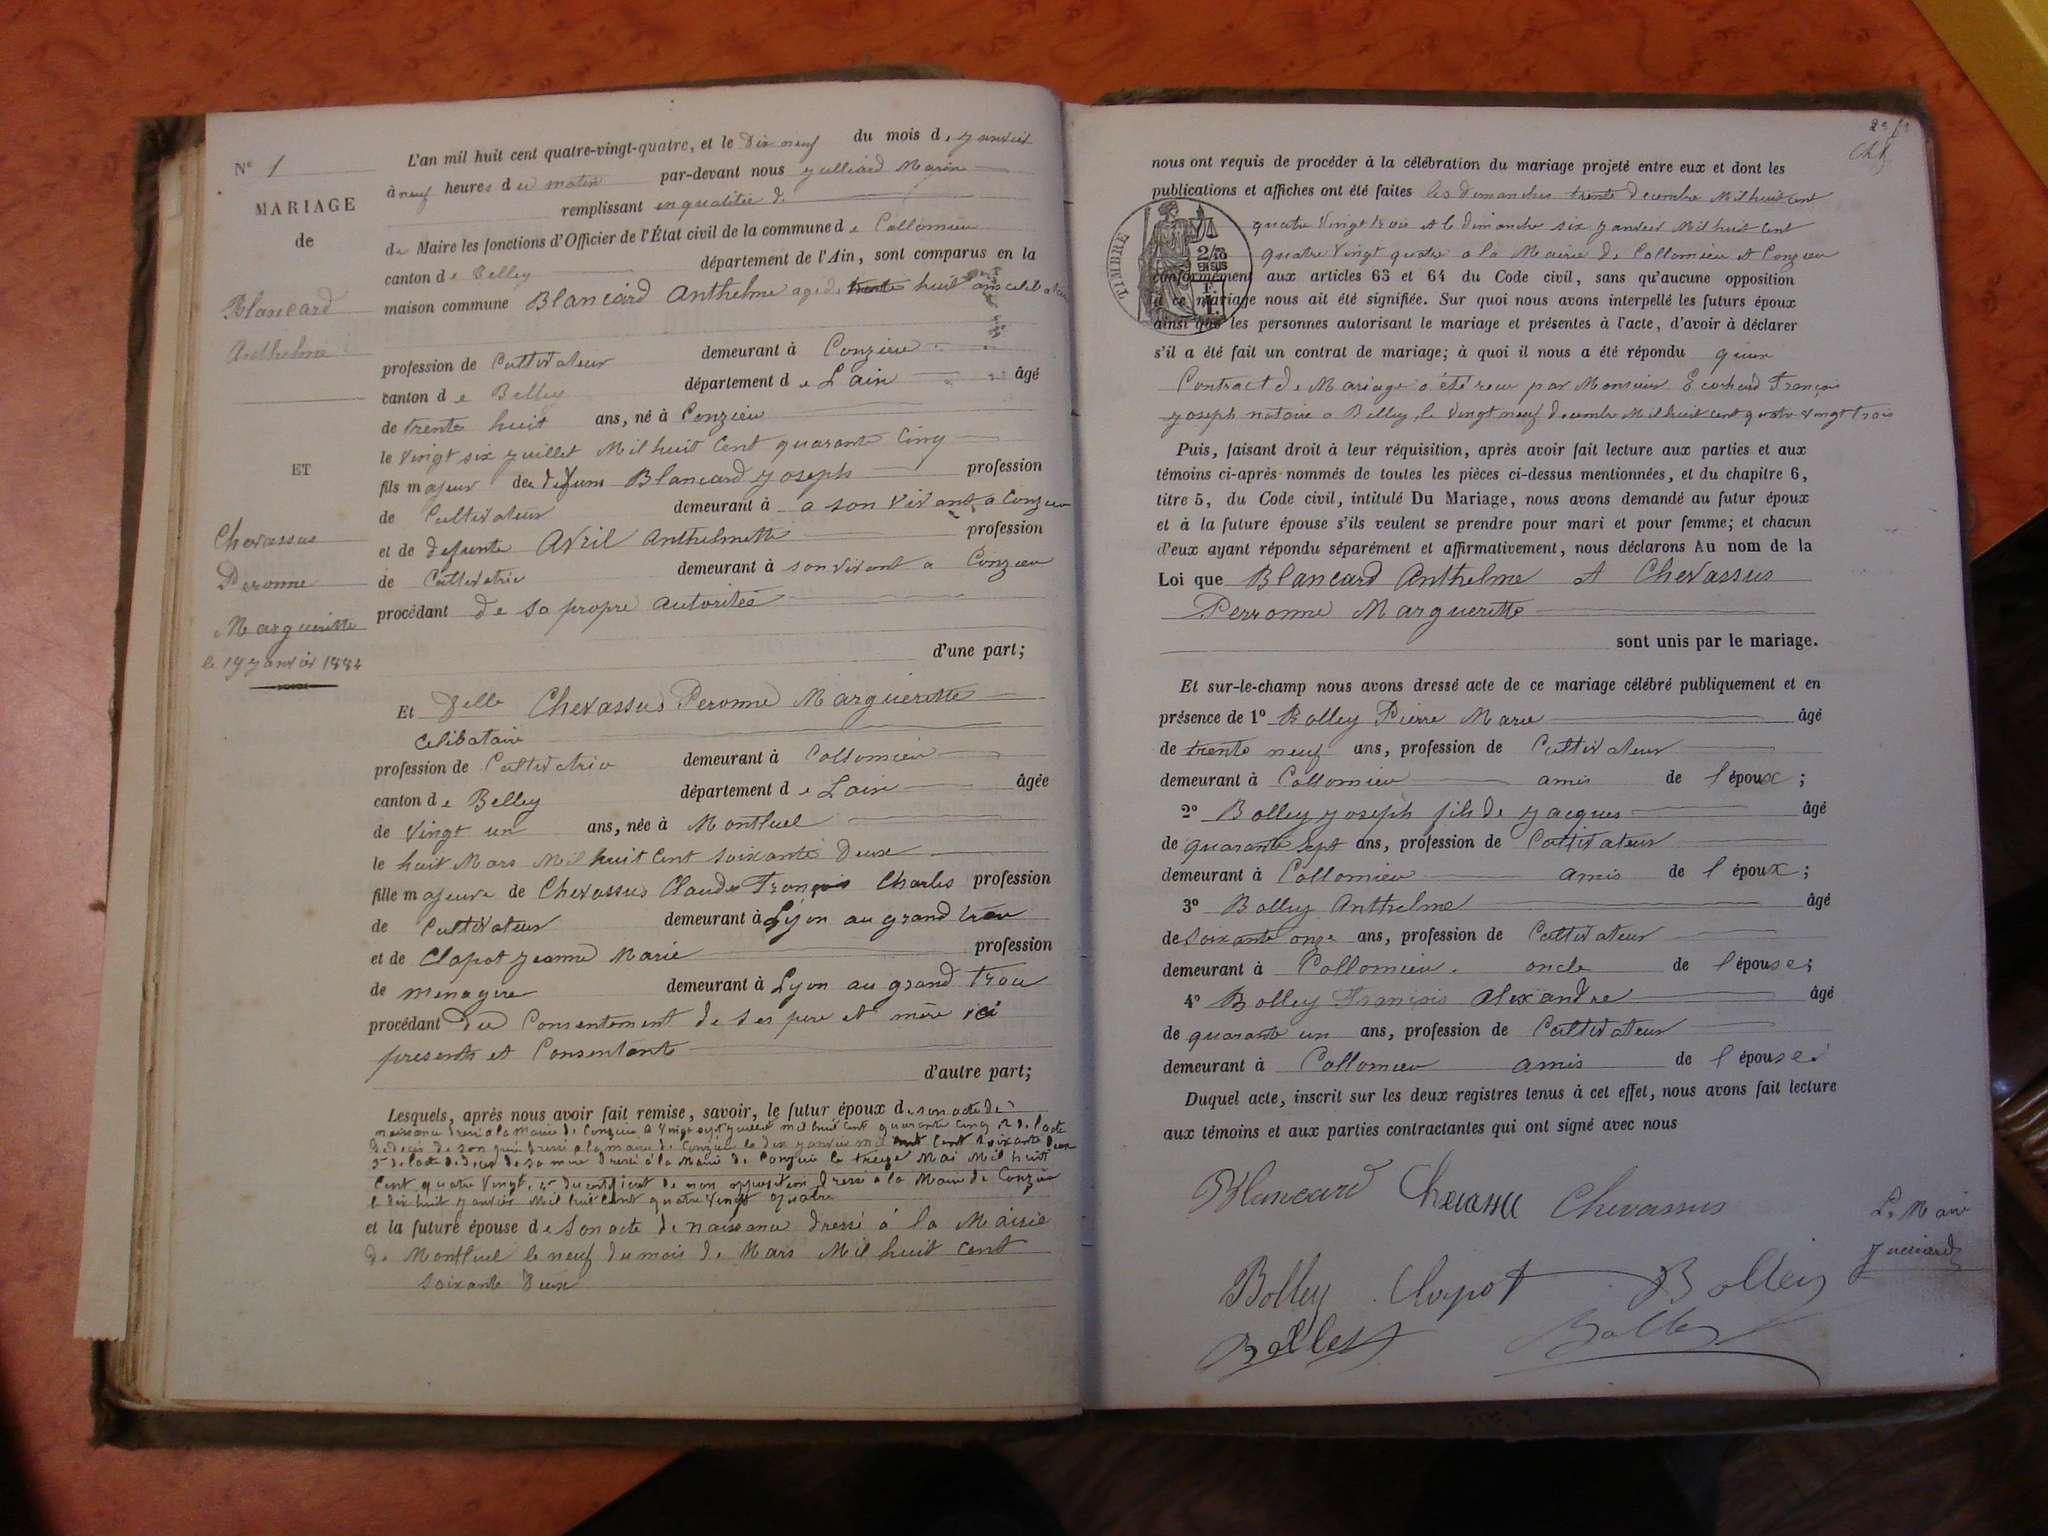 N° 1
MARIAGE
de
Blancard
Anthelme
ET
Chevassus
Peronne
Margueritte
le 19 janvier 1884
L'an mil huit cent quatre-vingt-quatre, et le Dix neuf du mois de janvier
à neuf heures du matin par-devant nous julliard Marin
remplissant en qualitée de
de Maire les fonctions d'Officier de l'État civil de la commune de Collomieu
canton de Belley département de l'Ain, sont comparus en la
maison commune Blancard Anthelme agé de trente huit ans celibataire
profession de Cultivateur demeurant à Conzieu
canton de Belley département de Lain âgé
de trente huit ans, né à Conzieu
le vingt six juillet Mil huit Cent quarante Cinq
fils majeur de defunt Blancard joseph profession
de Cultivateur demeurant à a son vivant a Conzieu
et de defunte Avril Anthelmette profession
de Cultivatrice demeurant à son vivant a Conzieu
procédant de sa propre autoritée
d'une part;
Et Delle Chevassus Peronne Margueritte
Celibataire
profession de Cultivatrice demeurant à Collomieu
canton de Belley département de Lain âgée
de vingt un ans, née à Montluel
le huit Mars Mil huit Cent soixante Deux
fille majeure de Chevassus Claude François Charles profession
de Cultivateur demeurant à Lyon au grand trou
et de Clapot jeanne Marie profession
de menagere demeurant à Lyon au grand trou
procédant du Consentement de ses pere et mère ici
presents et Consentants
d'autre part;
Lesquels, après nous avoir fait remise, savoir, le futur époux de son acte de
naissance dressé a la Mairie de Conzieu le vingt sept juillet mil huit cent quarante cinq 2° de l'acte
de deces de son père dressé a la mairie de Conzieu le dix janvier mil huit Cent soixante deux
3° de l'acte de deces de sa mère dressé à la Mairie de Conzieu le treize Mai Mil huit
Cent quatre vingt, 4° du certificat de non opposition dressé a la Mairie de Conzieu
le dix huit janvier Mil huit Cent quatre vingt quatre
et la future épouse de Son acte de naissance dressé à la Mairie
de Montluel le neuf du mois de Mars Mil huit cent
soixante deux
nous ont requis de procéder à la célébration du mariage projeté entre eux et dont les
publications et affiches ont été faites les dimanches trente decembre Mil huit Cent
quatre vingt trois et le dimanche six janvier Mil huit Cent
quatre vingt quatre a la Mairie de Collomieu et Conzieu
conformément aux articles 63 et 64 du Code civil, sans qu'aucune opposition
à ce mariage nous ait été signifiée. Sur quoi nous avons interpellé les futurs époux
ainsi que les personnes autorisant le mariage et présentes à l'acte, d'avoir à déclarer
s'il a été fait un contrat de mariage; à quoi il nous a été répondu qu'un
Contract de Mariage a été recu par Monsieur François
joseph notaire a Belley le vingt neuf decembre Mil huit cent quatre vingt trois
Puis, faisant droit à leur réquisition, après avoir fait lecture aux parties et aux
témoins ci-après nommés de toutes les pièces ci-dessus mentionnées, et du chapitre 6,
titre 5, du Code civil, intitulé Du Mariage, nous avons demandé au futur époux
et à la future épouse s'ils veulent se prendre pour mari et pour femme; et chacun
d'eux ayant répondu séparément et affirmativement, nous déclarons Au nom de la
Loi que Blancard Anthelme et Chevassus
Perronne Margueritte
sont unis par le mariage.
Et sur-le-champ nous avons dressé acte de ce mariage célébré publiquement et en
présence de 1° Bolley Pierre Marie âgé
de trente neuf ans, profession de Cultivateur
demeurant à Collomieu amis de l'époux;
2° Bolley joseph fils de jacques âgé
de quarante sept ans, profession de Cultivateur
demeurant à Collomieu amis de l'époux;
3° Bolley Anthelme âgé
de soixante onze ans, profession de Cultivateur
demeurant à Collomieu. oncle de l'épouse;
4° Bolley François Alexandre âgé
de quarante un ans, profession de Cultivateur
demeurant à Collomieu amis de l'épouse;
Duquel acte, inscrit sur les deux registres tenus à cet effet, nous avons fait lecture
aux témoins et aux parties contractantes qui ont signé avec nous
Blancard Chevassu Chevassus
Le Maire
Julliard
Bolley Clapot Bolley
Bolley Bolley
TIMBRE